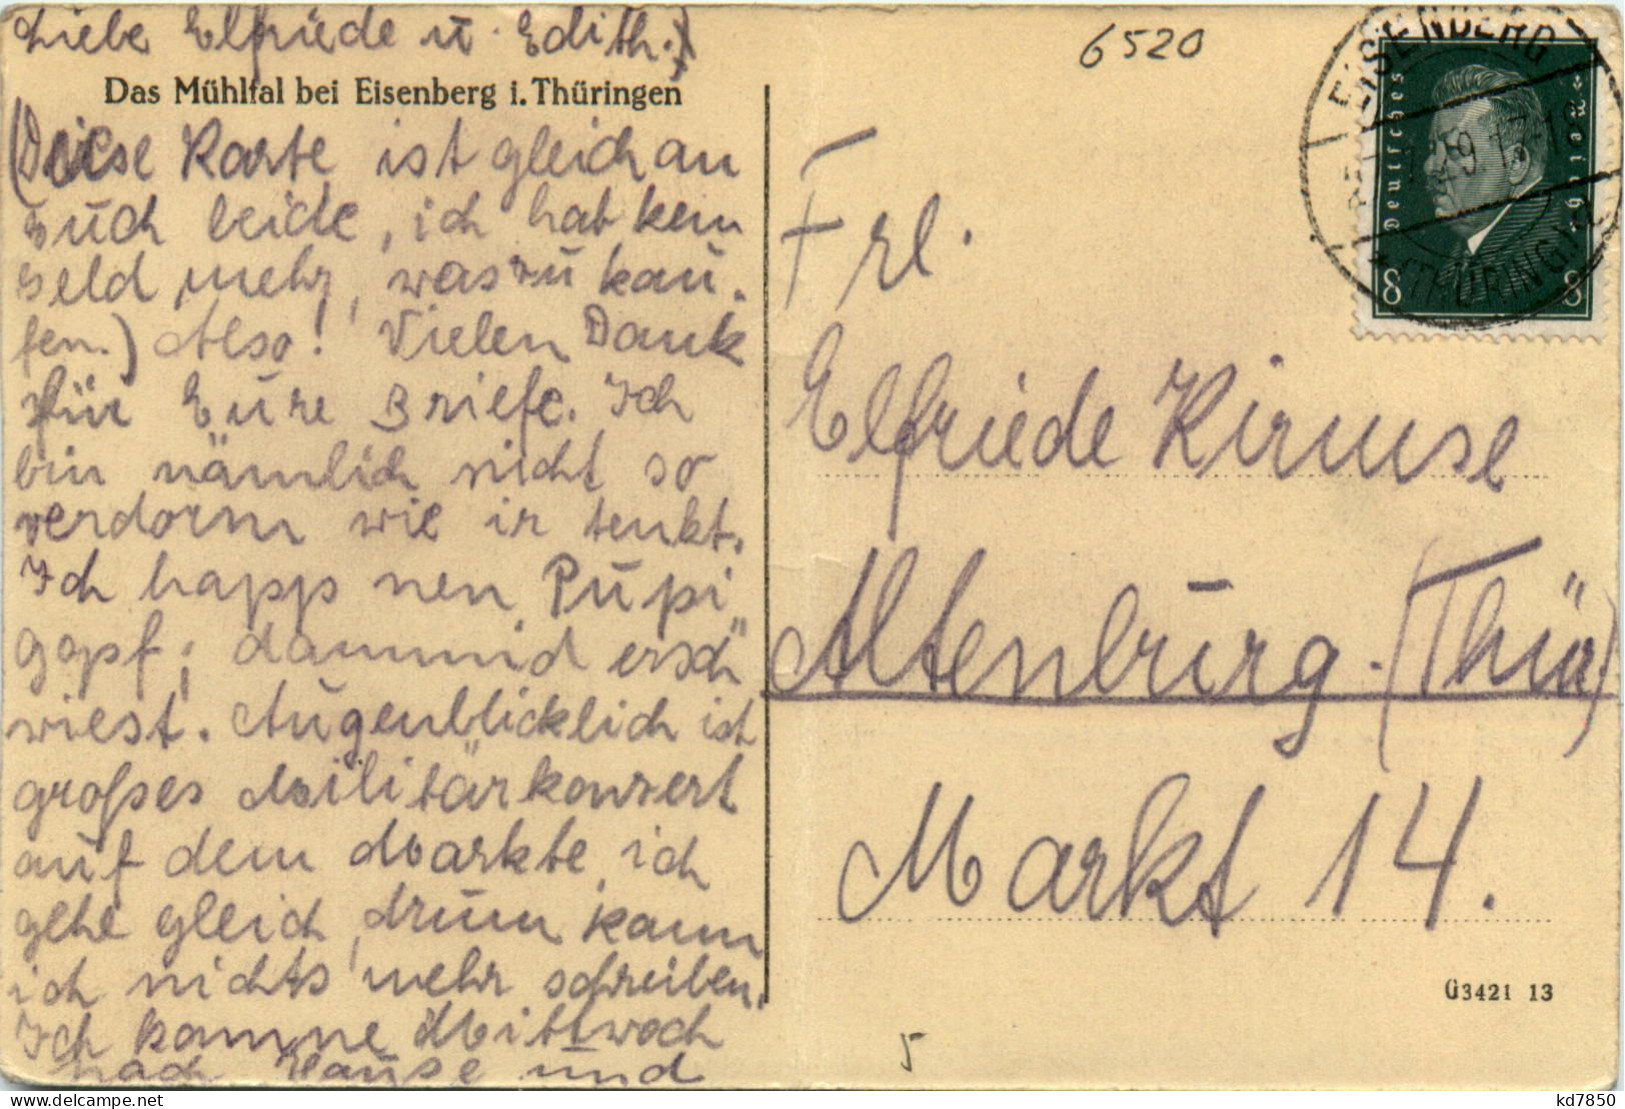 Liebe Elfriede u. Edith!
Das Mühltal bei Eisenberg i. Thüringen
(Diese Karte ist gleich an
Euch beide, ich hab kein
Geld mehr, was zu kau-
fen.) Also! Vielen Dank
für Eure Briefe. Ich
bin nämlich nicht so
verdorm wie ir tenkt.
Ich happ nen "Pupi
gopf; dammid ersch"
wiest. Augenblicklich ist
großes Militärkonzert
auf dem Markte, ich
gehe gleich, drum kann
ich nichts mehr schreiben.
Ich komme Mittwoch
nach Hause und
6520
EISENBERG
(THÜRINGEN)
Deutsches Reich
8 8
Frl.
Elfriede Kirmse
Altenburg. (Thür)
Markt 14.
G3421 13
5
kd7850